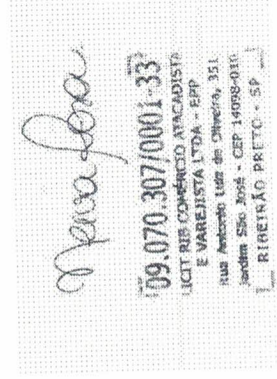 Neiva Rosa
09.070.307/0001-33
LICIT RIB COMÉRCIO ATACADISTA
E VAREJISTA LTDA - EPP
Rua Antonio Luiz de Oliveira, 351
Jardim São José - CEP 14098-010
RIBEIRÃO PRETO - SP